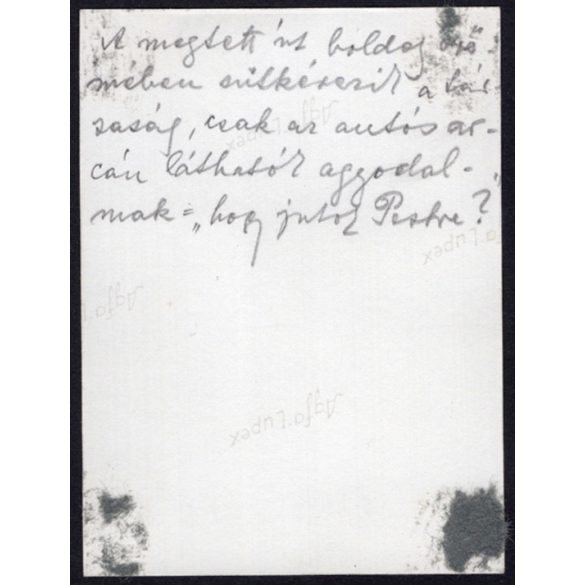 A megtett út boldog örö-
mében sütkérezik a tár-
saság, csak az autós ar-
cán láthatók aggodal-
mak = „hogy jutok Pestre?"
Agfa Lupex
Agfa Lupex
Agfa
Agfa Lupex